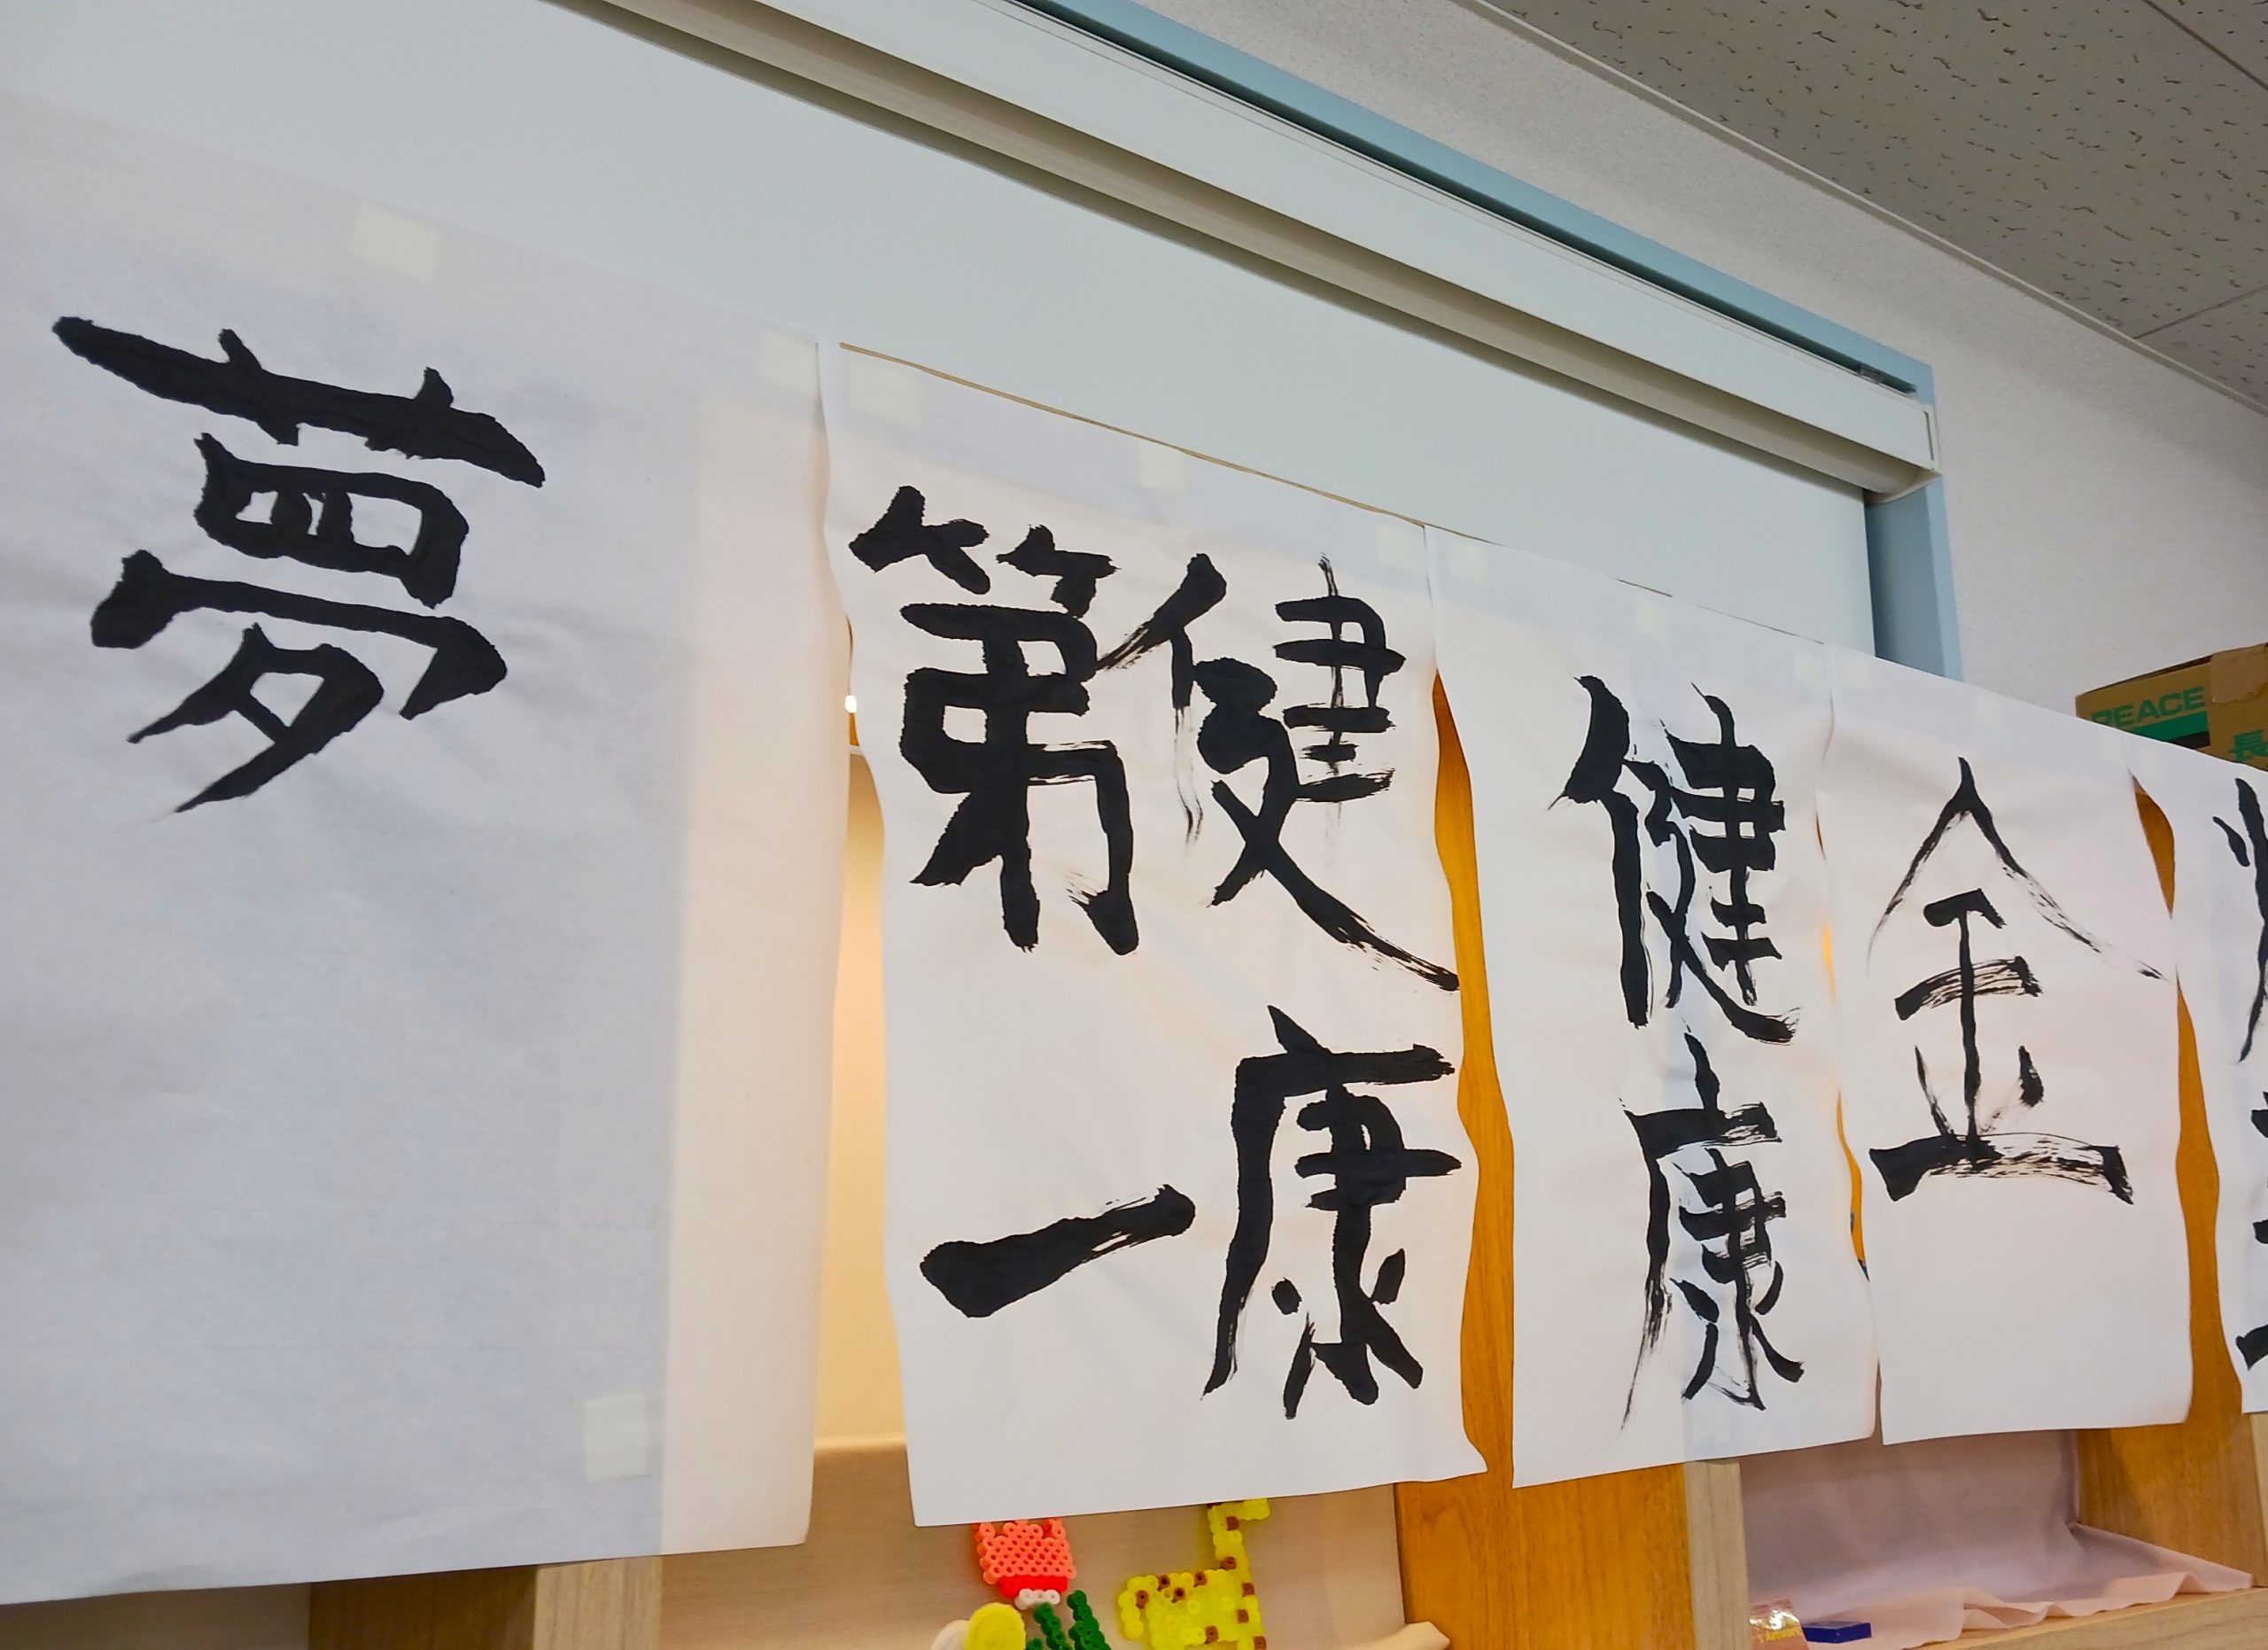 夢
健康
第一
健康
金
PEACE
長